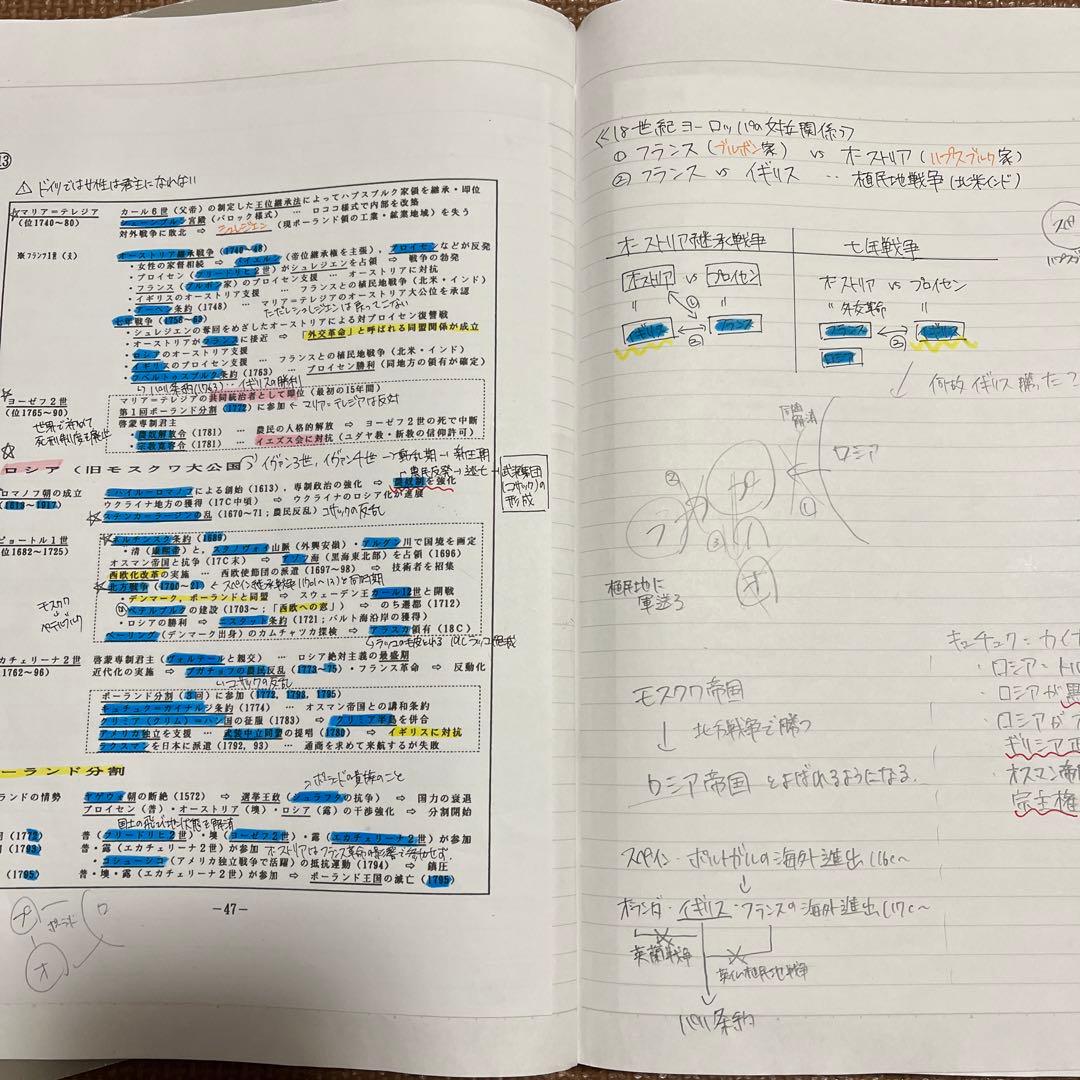 13
⚠ ドイツでは女性は君主になれない
マリア＝テレジア　カール6世（父帝）の制定した王位継承法によってハプスブルク家領を継承・即位
（位1740〜80）　シェーンブルン宮殿（バロック様式）　…　ロココ様式で内部を改築
対外戦争に敗北　⇨　シュレジエン（現ポーランド領の工業・鉱業地域）を失う
※フランツ1世（夫）　オーストリア継承戦争（1740〜48）　（帝位継承権を主張），プロイセンなどが反発
・女性の家督相続　⇨　バイエルン
・プロイセン（フリードリヒ2世）がシュレジエンを占領　⇨　戦争の勃発
・フランス（ブルボン家）のプロイセン支援　…　オーストリアに対抗
・イギリスのオーストリア支援　…　フランスとの植民地戦争（北米・インド）
・アーヘン条約（1748）　…　マリア＝テレジアのオーストリア大公位を承認
ただしシュレジエンは戻ってこない
七年戦争（1756〜63）
・シュレジエンの奪回をめざしたオーストリアによる対プロイセン復讐戦
・オーストリアがフランスに接近　⇨　「外交革命」と呼ばれる同盟関係が成立
・ロシアのオーストリア支援
・イギリスのプロイセン支援　…　フランスとの植民地戦争（北米・インド）
・フベルトゥスブルク条約（1763）　…　プロイセン勝利（同地方の領有が確定）
↳ パリ条約(1763)…イギリスの勝利
ヨーゼフ2世　マリア＝テレジアの共同統治者として即位（最初の15年間）
（位1765〜90）　第1回ポーランド分割（1772）に参加 ← マリア＝テレジアは反対
世界で初めて死刑制度を廃止
啓蒙専制君主
・農奴解放令（1781）　…　農民の人格的解放　⇨　ヨーゼフ2世の死で中断
・宗教寛容令（1781）　⇨　イエズス会に対抗（ユダヤ教・新教の信仰許可）
ロシア（旧モスクワ大公国）イヴァン3世，イヴァン4世→動乱期→新王朝
農民反発→逃亡→武装集団(コサック)の形成
ロマノフ朝の成立　ミハイル＝ロマノフによる創始（1613），専制政治の強化　⇨　農奴制を強化
1613〜1917）　ウクライナ地方の獲得（17C中頃）　⇨　ウクライナのロシア化が進展
ステンカ＝ラージンの乱（1670〜71；農民反乱）コサックの反乱
ピョートル1世　ネルチンスク条約（1689）
位1682〜1725）　・清（康熙帝）と，スタノヴォイ山脈（外興安嶺）・アルグン川で国境を画定
オスマン帝国と抗争（17C末）　⇨　アゾフ海（黒海東北部）を占領（1696）
西欧化改革の実施　…　西欧使節団の派遣（1697〜98）　⇨　技術者を招集
北方戦争（1700〜21）← スペイン継承戦争(1701〜13)と同時期
・デンマーク，ポーランドと同盟　⇨　スウェーデン王カール12世と開戦
・ペテルブルクの建設（1703〜；「西欧への窓」）　⇨　のち遷都（1712）
モスクワ
↓
ペテルブルク
・ロシアの勝利　⇨　ニスタット条約（1721；バルト海沿岸の獲得）
ベーリング（デンマーク出身）のカムチャツカ探検　⇨　アラスカ領有（18C）
カチェリーナ2世　啓蒙専制君主（ヴォルテールと親交）　…　ロシア絶対主義の最盛期
1762〜96）　近代化の実施　⇨　プガチョフの農民反乱（1773〜75）・フランス革命　⇨　反動化
コサックの反乱
ポーランド分割（3回）に参加（1772，1793，1795）
キュチュク＝カイナルジ条約（1774）　…　オスマン帝国との講和条約
クリミア（クリム）＝ハン国の征服（1783）　⇨　クリミア半島を併合
アメリカ独立を支援　…　武装中立同盟の提唱（1780）　⇨　イギリスに対抗
ラクスマンを日本に派遣（1792，93）　…　通商を求めて来航するが失敗
ーランド分割
ポーランドの貴族のこと
ランドの情勢　ヤゲウォ朝の断絶（1572）　⇨　選挙王政（シュラフタの抗争）　⇨　国力の衰退
プロイセン（普）・オーストリア（墺）・ロシア（露）の干渉強化　⇨　分割開始
国土の飛び地状態を解消
（1772）　普（フリードリヒ2世）・墺（ヨーゼフ2世）・露（エカチェリーナ2世）が参加
（1793）　普・露（エカチェリーナ2世）が参加　オーストリアはフランス革命の影響で参加せず.
・コシューシコ（アメリカ独立戦争で活躍）の抵抗運動（1794）　⇨　鎮圧
（1795）　普・墺・露（エカチェリーナ2世）が参加　⇨　ポーランド王国の滅亡（1795）
—47—
プ　ポーランド　ロ
オ
≪18世紀ヨーロッパの対立関係≫
① フランス（ブルボン家）　vs　オーストリア（ハプスブルク家）
② フランス　vs　イギリス　…　植民地戦争（北米インド）
オーストリア継承戦争　七年戦争
オーストリア　vs　プロイセン　オーストリア　vs　プロイセン
〃　①　〃　〃　外交革命　〃
イギリス　②　フランス　フランス　②　イギリス
ロシア
何故イギリス勝った？
ロシア
①
②
フ　プ
③
オ
植民地に
軍送る
キュチュク＝カイナ
・ロシア＝トル
モスクワ帝国　・ロシアが黒
↓ 北方戦争で勝つ　・ロシアがオ
ギリシア正
ロシア帝国　とよばれるようになる.　・オスマン帝国
宗主権
スペイン・ポルトガルの海外進出 16c〜
↓
オランダ・イギリス・フランスの海外進出 17c〜
英蘭戦争　英仏植民地戦争
パリ条約